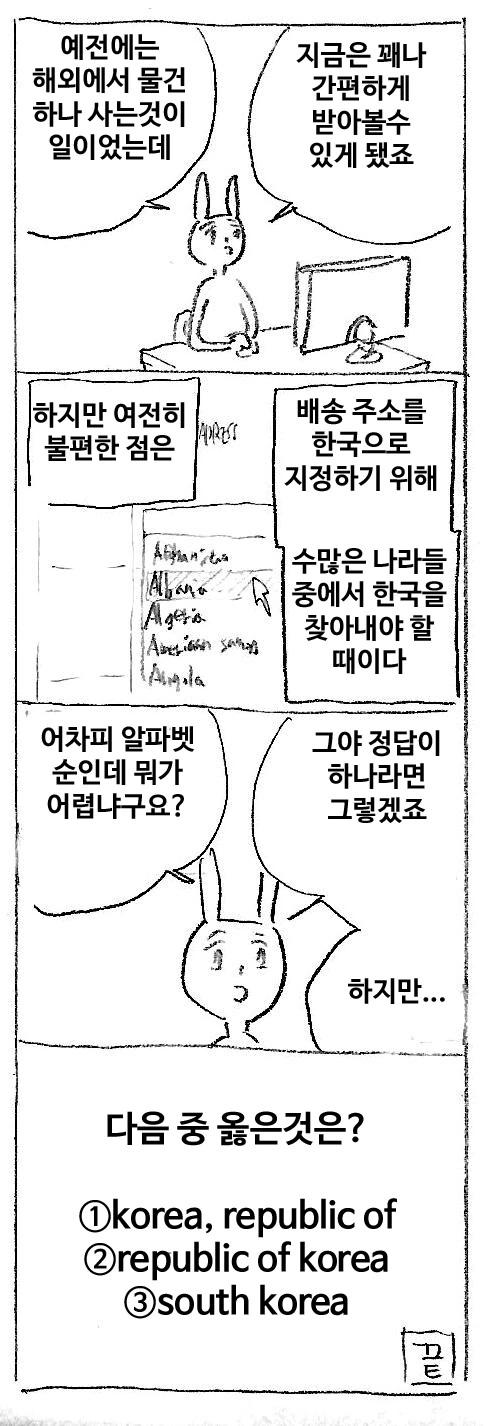 예전에는
해외에서 물건
하나 사는것이
일이었는데
지금은 꽤나
간편하게
받아볼수
있게 됐죠
하지만 여전히
불편한 점은
ADDRESS
Afghanistan
Albania
Algeria
American samoa
Angola
배송 주소를
한국으로
지정하기 위해
수많은 나라들
중에서 한국을
찾아내야 할
때이다
어차피 알파벳
순인데 뭐가
어렵냐구요?
그야 정답이
하나라면
그렇겠죠
하지만...
다음 중 옳은것은?
①korea, republic of
②republic of korea
③south korea
끝